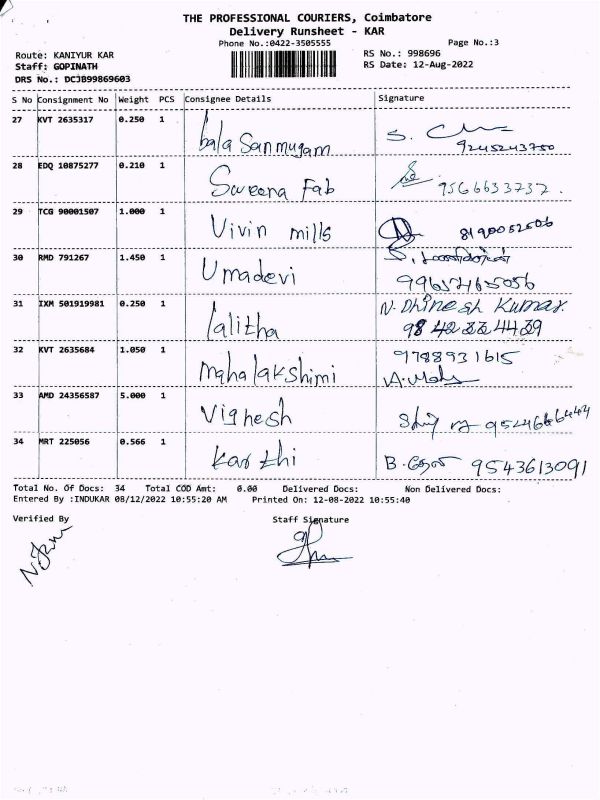 THE PROFESSIONAL COURIERS, Coimbatore
Delivery Runsheet - KAR
Phone No.:0422-3505555
Page No.:3
Route: KANIYUR KAR
RS No.: 998696
Staff: GOPINATH
RS Date: 12-Aug-2022
DRS No.: DCJB99869603
S No Consignment No Weight PCS Consignee Details Signature
27 KVT 2635317 0.250 1 bala Sanmugam S.
9245243750
28 EDQ 10875277 0.210 1 Sareena Fab 9566633732.
29 TCG 90001507 1.000 1 Vivin mills 8190052506
30 RMD 791267 1.450 1 Umadevi
9965265056
31 IXM 501919981 0.250 1 lalitha N. Dhinesh Kumar.
9842334439
32 KVT 2635684 1.050 1 mahalakshimi 9788931615
33 AMD 24356587 5.000 1 Vighesh
34 MRT 225056 0.566 1 Karthi B. 9543613091
Total No. Of Docs: 34 Total COD Amt: 0.00 Delivered Docs: Non Delivered Docs:
Entered By :INDUKAR 08/12/2022 10:55:20 AM Printed On: 12-08-2022 10:55:40
Verified By Staff Signature